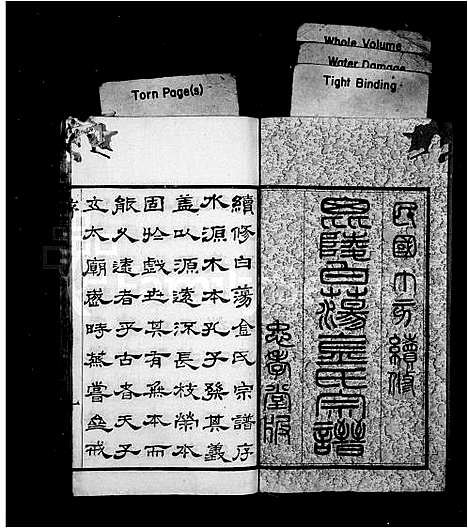 Torn Page(s)
Whole Volume
Water Damage
Tight Binding
民國十一方續修
毘陵白蕩金氏宗譜
忠孝堂版
續修白蕩金氏宗譜序
水源木本孔子發其義
蓋以源遠流長枝榮本
固於戲世其有無本而
能久遠者乎古者天子
立太廟歲時蒸嘗無戒